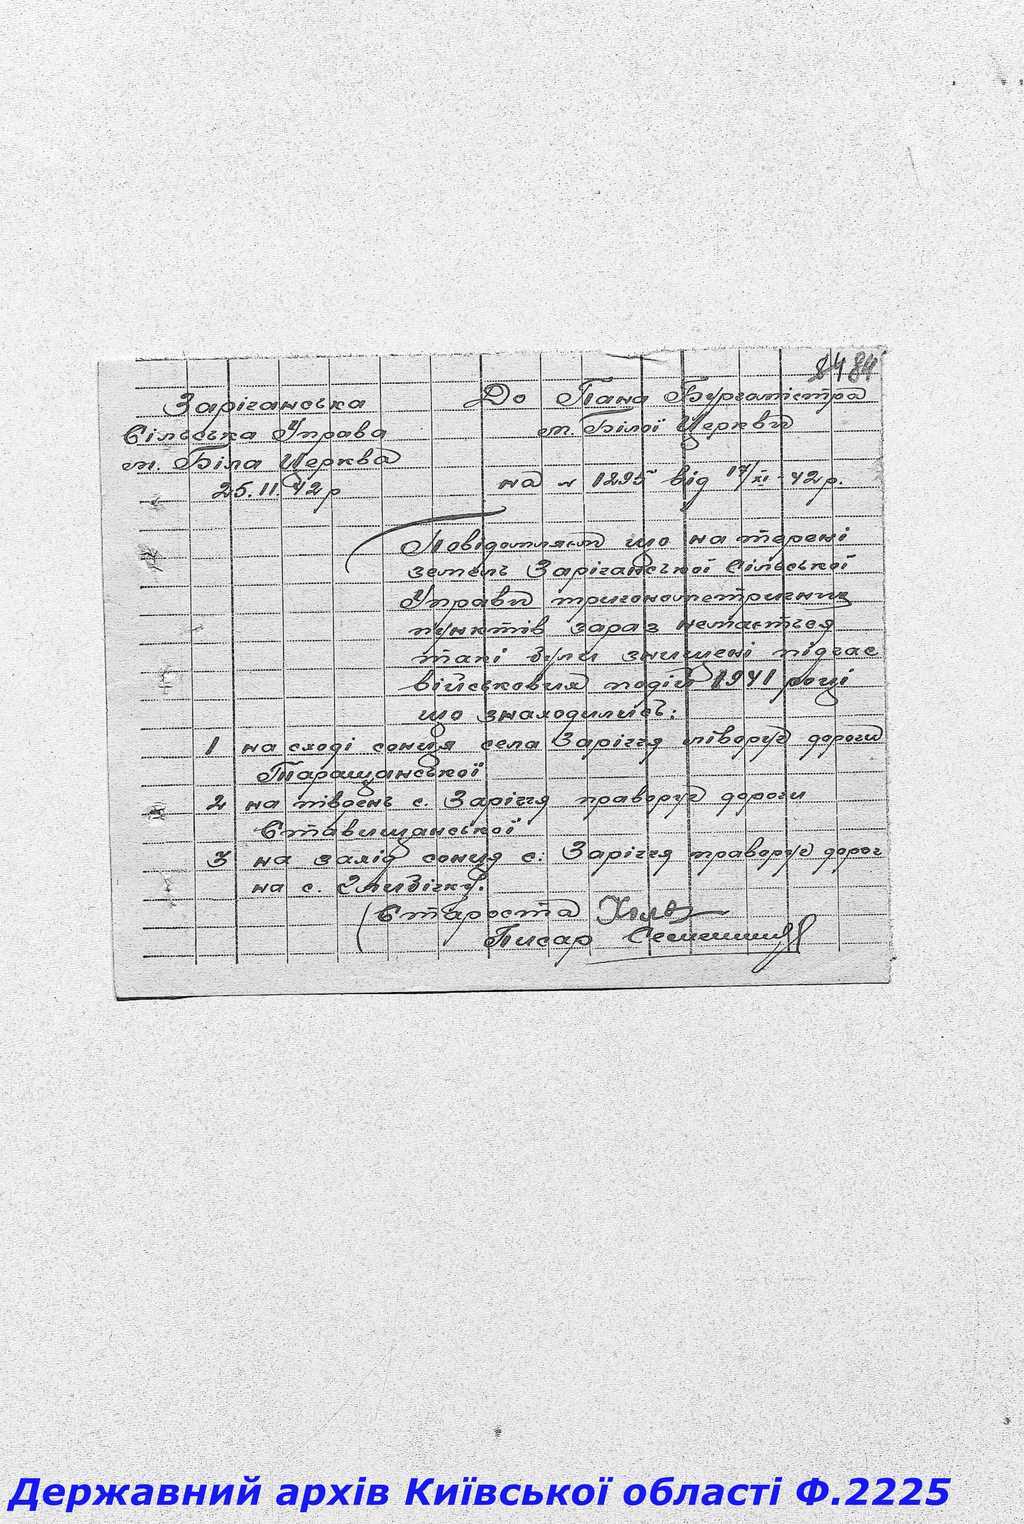 84 84
Зарічанська
Сільська Управа
м. Біла Церква
25.11.42р
До Пана Бургамістра
м. Білої Церкви
на № 1295 від 17/XI-42р.
Повідомляєм що на терені
земель Зарічанської Сільської
Управи тригонометричних
пунктів зараз немається
такі були знищені підчас
військовия подій 1941 році
що знаходились:
1 на сході сонця села Заріччя ліворуч дороги
Таращанської
2 на південь с. Заріччя праворуч дороги
Ставищанської
3 на захід сонця с. Заріччя праворуч дорог
на с.
Староста
Писар
Державний архів Київської області Ф.2225